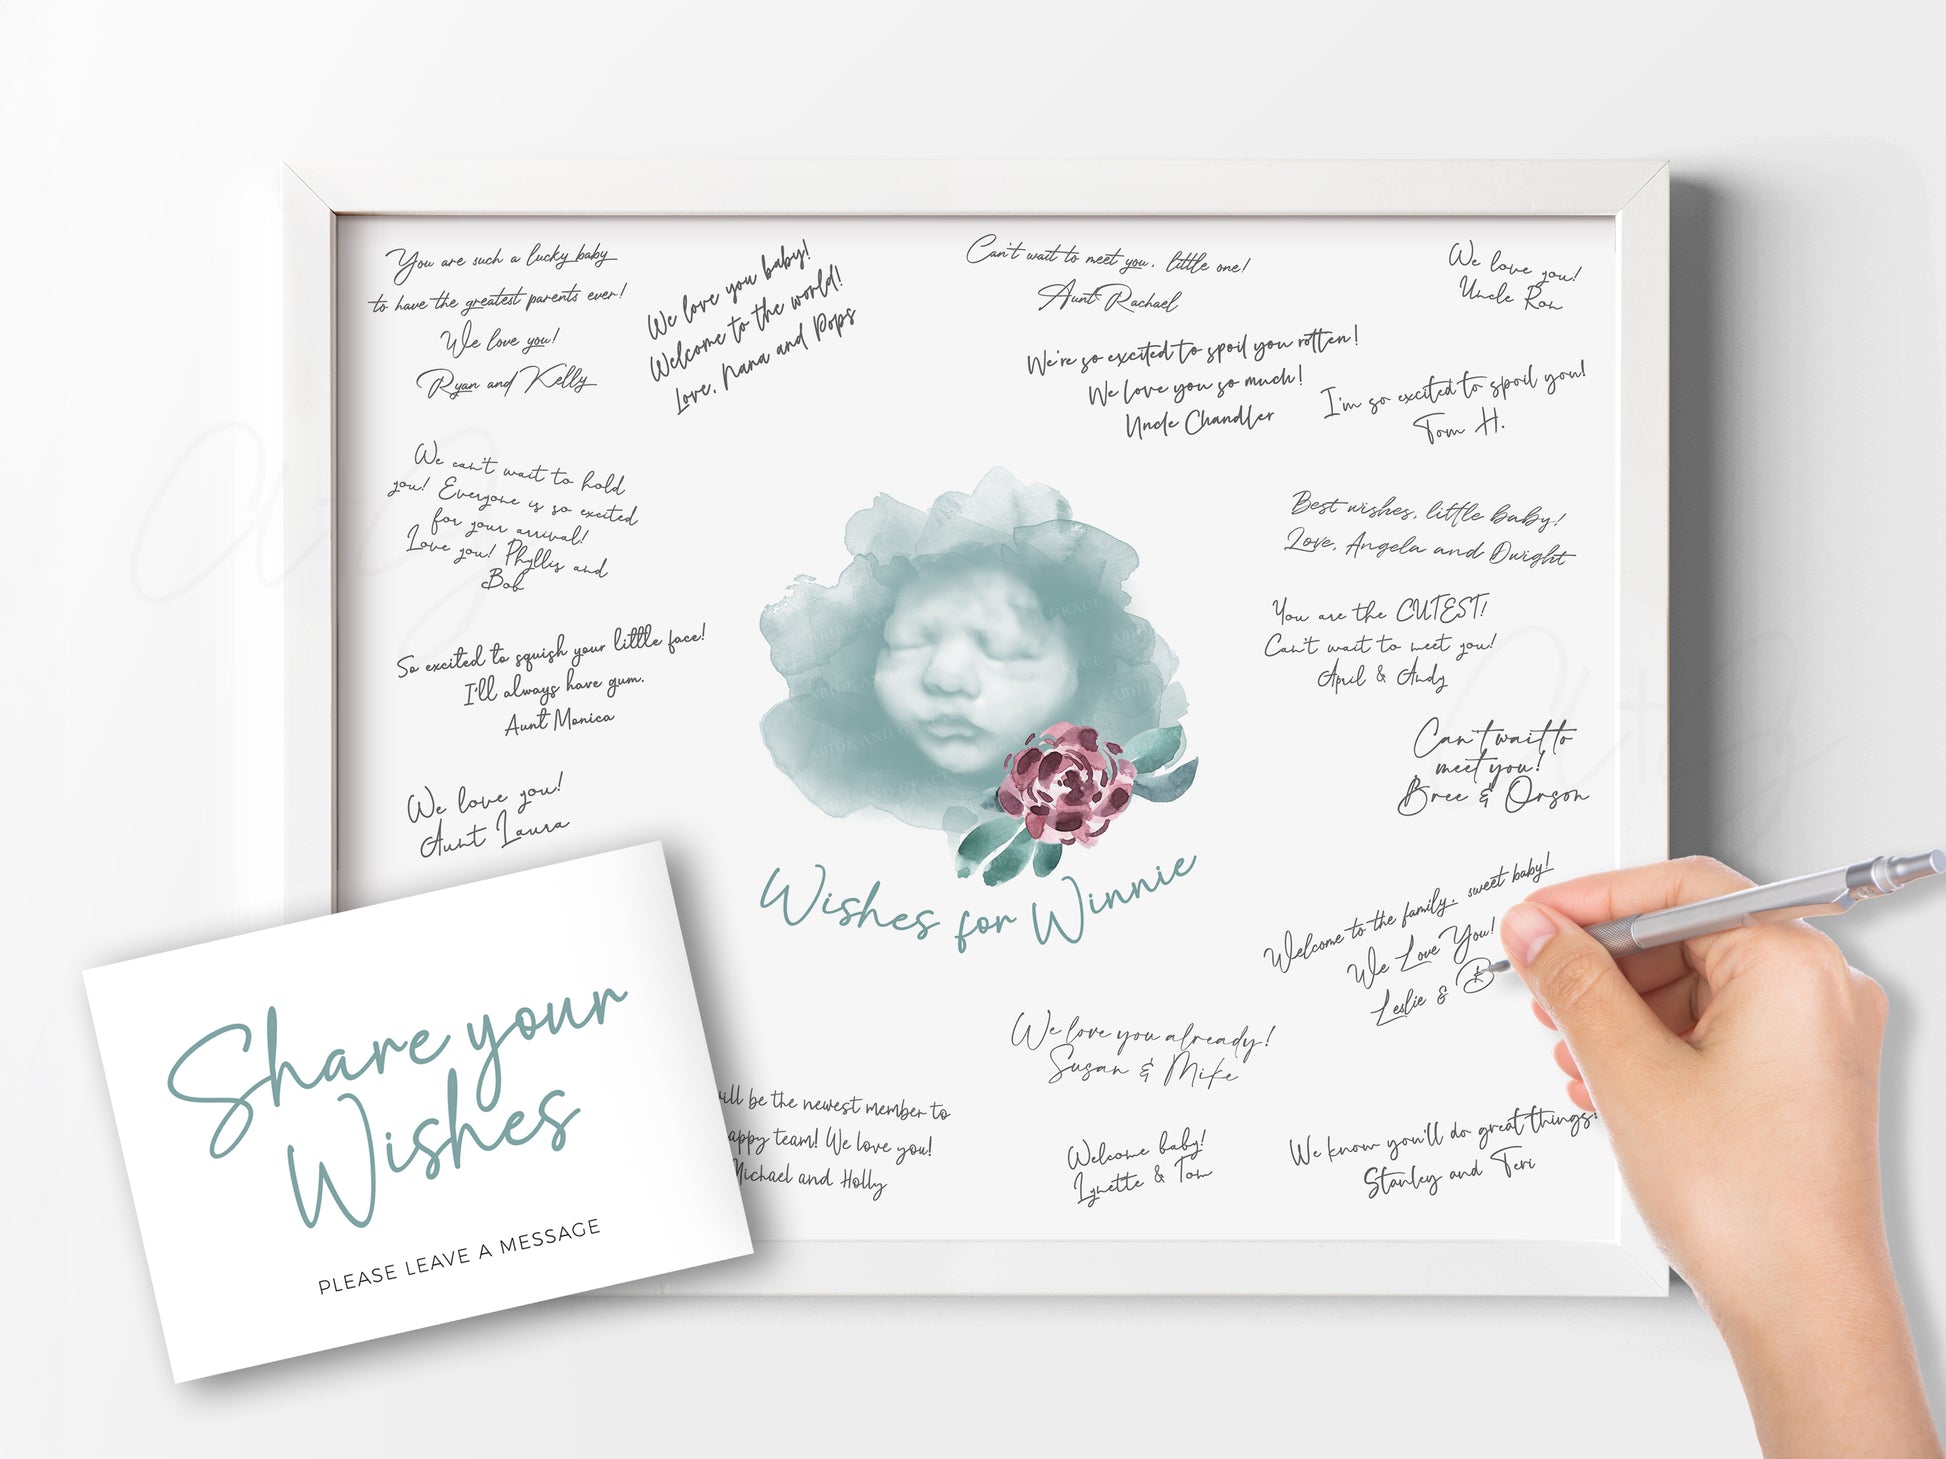 You are such a lucky baby
to have the greatest parents ever!
We love you!
Ryan and Kelly
We love you baby!
Welcome to the world!
Love, Nana and Pops
Can't wait to meet you, little one!
Aunt Rachael
We love you!
Uncle Ron
We're so excited to spoil you rotten!
We love you so much!
Uncle Chandler
I'm so excited to spoil you!
Tom H.
We can't wait to hold
you! Everyone is so excited
for your arrival!
Love you! Phyllis and
Bob
Best wishes, little baby!
Love, Angela and Dwight
So excited to squish your little face!
I'll always have gum.
Aunt Monica
You are the CUTEST!
Can't wait to meet you!
April & Andy
ABIDE AND GRACE
We love you!
Aunt Laura
Can't wait to
meet you!
Bree & Orson
Wishes for Winnie
Welcome to the family, sweet baby!
We Love You!
Leslie & B
We love you already!
Susan & Mike
will be the newest member to
happy team! We love you!
Michael and Holly
Welcome baby!
Lynette & Tom
We know you'll do great things!
Stanley and Teri
Share your
Wishes
PLEASE LEAVE A MESSAGE